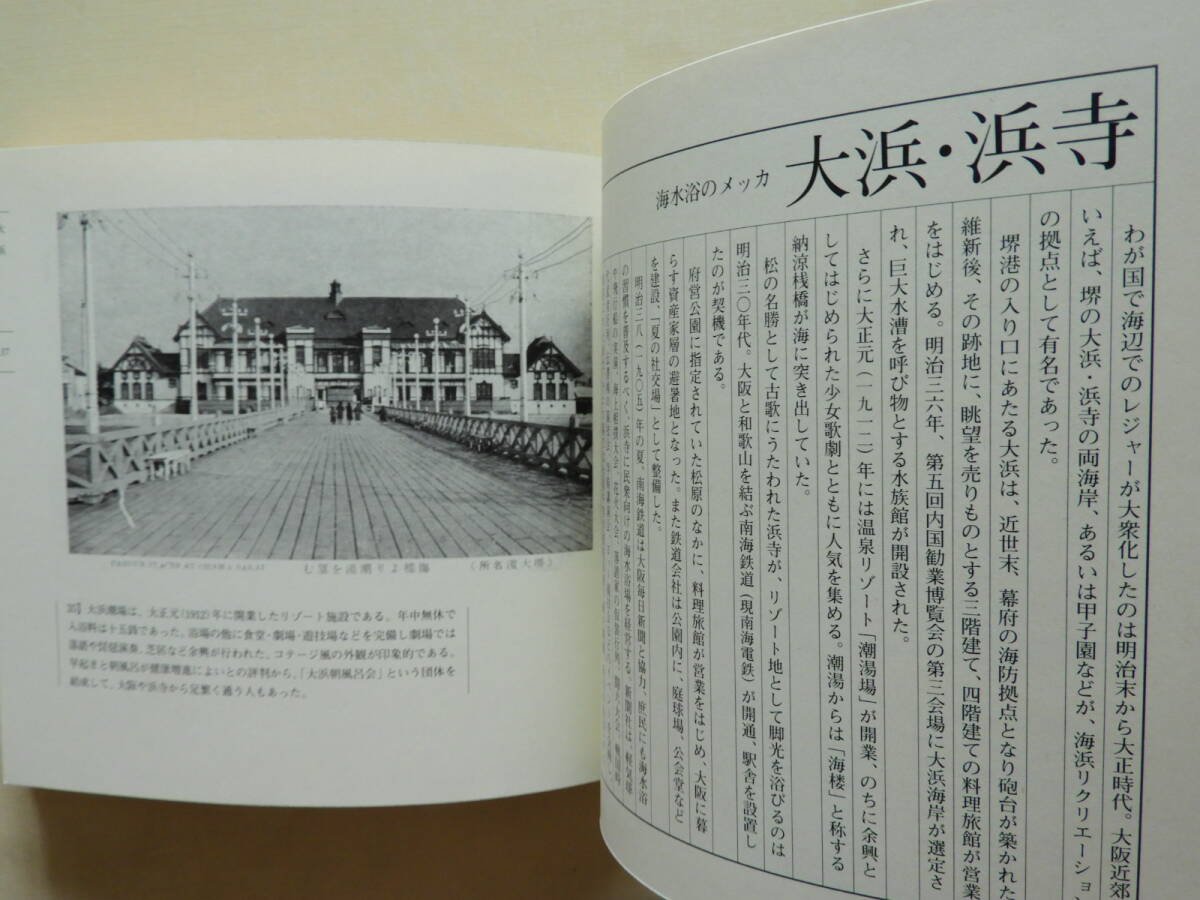 大浜・浜寺
海水浴のメッカ
わが国で海辺でのレジャーが大衆化したのは明治末から大正時代。大阪近郊
いえば、堺の大浜・浜寺の両海岸、あるいは甲子園などが、海浜リクリエーション
の拠点として有名であった。
堺港の入り口にあたる大浜は、近世末、幕府の海防拠点となり砲台が築かれた
維新後、その跡地に、眺望を売りものとする三階建て、四階建ての料理旅館が営業
をはじめる。明治三六年、第五回内国勧業博覧会の第三会場に大浜海岸が選定さ
れ、巨大水漕を呼び物とする水族館が開設された。
さらに大正元（一九一二）年には温泉リゾート「潮湯場」が開業、のちに余興と
してはじめられた少女歌劇とともに人気を集める。潮湯からは「海楼」と称する
納涼桟橋が海に突き出していた。
松の名勝として古歌にうたわれた浜寺が、リゾート地として脚光を浴びるのは
明治三〇年代。大阪と和歌山を結ぶ南海鉄道（現南海電鉄）が開通、駅舎を設置し
たのが契機である。
府営公園に指定されていた松原のなかに、料理旅館が営業をはじめ、大阪に暮
らす資産家層の避暑地となった。また鉄道会社は公園内に、庭球場、公会堂など
を建設、「夏の社交場」として整備した。
明治三八（一九〇五）年の夏、南海鉄道は大阪毎日新聞と協力、庶民にも海水浴
の習慣を普及するべく、浜寺に民衆向けの海水浴場を経営する。新聞社は、軽気球
（所名濱大堺）
む望を湯潮りよ楼海
35】大浜潮湯は、大正元（1912）年に開業したリゾート施設である。年中無休で
入浴料は十五銭であった。浴場の他に食堂・劇場・遊技場などを完備し劇場では
落語や琵琶演奏、芝居など余興が行われた。コテージ風の外観が印象的である。
早起きと朝風呂が健康増進によいとの評判から、「大浜朝風呂会」という団体を
結成して、大阪や浜寺から足繁く通う人もあった。